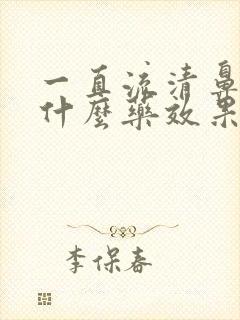 一直流清鼻
什麼藥效果
李保春